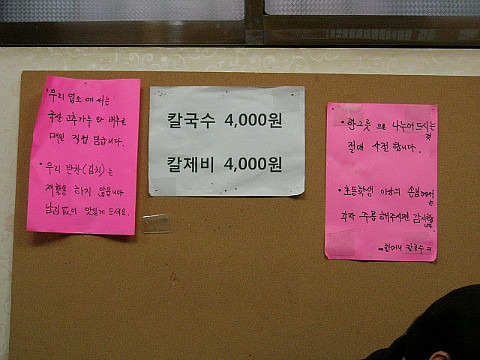 • 우리 업소에서는
국산 고추가루와 배추로
매일 직접 담습니다.
• 우리 반찬(김치)는
재활용 하지 않습니다
남김없이 맛있게 드세요.
칼국수 4,000원
칼제비 4,000원
• 한그릇으로 나누어 드시는 것
절대 사절합니다.
• 초등학생 이상의 손님께서는
각자 주문해주시면 감사합니다
할머니 칼국수